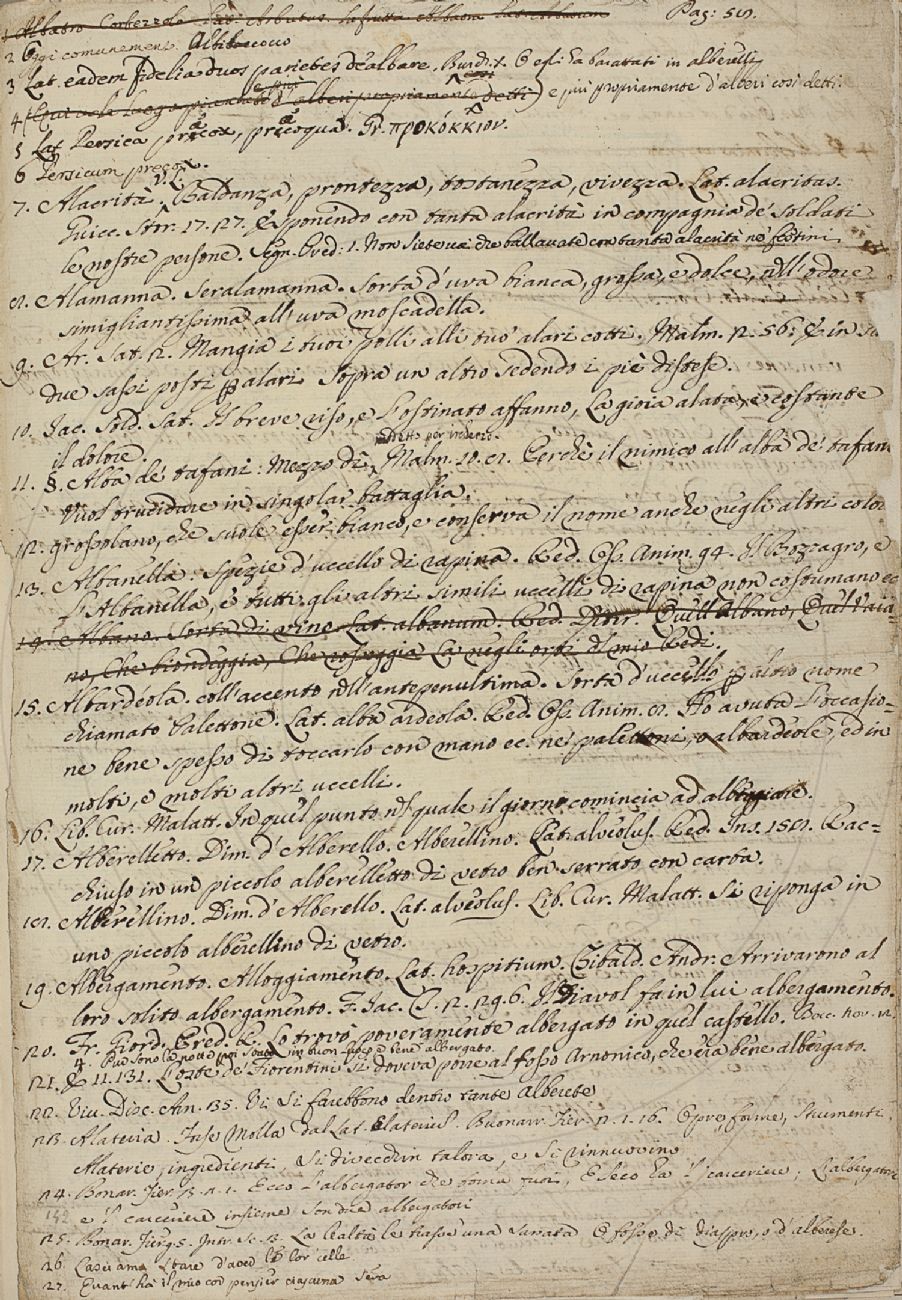 1 Albatro Corbezzolo Lat. Arbutus. la frutta Albatra Lat. Arbutum Pag: 59.
2 Oggi comunement. Albicocco
3 Lat. eadem fidelia duos parietes dealbare. Burch. 1. E gli ha barattati in alberelli
4 e più propriamente d'alberi così detti.
5 Lat Persica præcox, præcoqua. Gr. προκόκκιον.
6 Persicum precox.
7. Alacrità. V. L. Baldanza, prontezza, tostanezza, vivezza. Lat. alacritas.
Guicc. Stor. 17. 27. Esponendo con tanta alacrità in compagnia de' soldati
le nostre persone. Segn. Pred: 1. Non siete voi che ballavate con tanta alacrità ne' festini
8. Alamanna. Seralamanna. Sorta d'uva bianca, grossa, e dolce, nell'odore
simigliantissima all'uva moscadella.
9. Ar. Sat. 2. Mangia i tuoi polli alli tuo' alari cotti. Malm. 2. 56. E in su
due sassi posti p alari Sopra un altro sedendo i piè distese.
10. Jac. Sold. Sat. Il breve riso, e l'ostinato affanno, La gioia alata, e costante
il dolore.
11. §. Alba de' tafani: Mezzo dì, detto per ischerzo. Malm. 10. 8. Perchè il nimico all'alba de' tafani
Vuol trucidare in singolar battaglia.
12. grossolano, che suole esser bianco, e conserva il nome anche negli altri color
13. Albanella. Spezie d'uccello di rapina. Red. Oss. Anim. 94. Il Bozzagro, e
l'Albanella, e tutti gli altri simili uccelli di rapina non costumano ec
14. Albano. Sorta di vino. Lat. albanum. Red. Ditir. Quell'Albano, Quel Vaia=
no, Che biondeggia, Che rosseggia Là negli orti del mio Redi.
15. Albardeola. coll'accento nell'antepenultima. Sorta d'uccello p altro nome
chiamato Palettone. Lat. alba ardeola. Red. Oss. Anim. 8. Ho avuta l'occasio=
ne bene spesso di toccarlo con mano ec. ne' palettoni, o albardeole, ed in
molti, e molti altri uccelli.
16. Lib. Cur. Malatt. In quel punto nel quale il giorno comincia ad albeggiare.
17. Alberelletto. Dim. d'Alberello. Alberellino. Lat. alveolus. Red. Ins. 158. Rac=
chiuso in un piccolo alberelletto di vetro ben serrato con carta.
18. Alberellino. Dim. d'Alberello. Lat. alveolus. Lib. Cur. Malatt. Si riponga in
uno piccolo alberellino di vetro.
19. Albergamento. Alloggiamento. Lat. hospitium. Zibald. Andr. Arrivarono al
loro solito albergamento. F. Jac. T. 2. 29. 6. Il Diavol fa in lui albergamento.
20. Fr. Giord. Pred. R. Lo trovò poveramente albergato in quel castello. Bocc. nov. 12.
in buon luogo e bene albergato.
21. E 11. 131. L'oste de' Fiorentini si doveva porre al fosso Arnonico, che era bene albergato.
22. Viv. Disc. Arn. 35. Vi si farebbono dentro tante Alberete
23. Alateria. Buonarr. Fier. 2. 1. 16. Opre, forme, Strumenti,
Materie, ingredienti, si divecchin talora, e si rinnuovino
24. Bonar. Fier. 3. 2. 1. Ecco l'albergator che torna fuori, E seco ha 'l carceriere. L'albergatore
e 'l carceriere insieme son due albergatori
25. Bonar. Fier. 5. Intr. Sc. 3. La lealtà le trasse una sassata O fosse di diaspro, o d'alberese.
26.
27. Quant'ha il mio cor pensier ciascuna sera